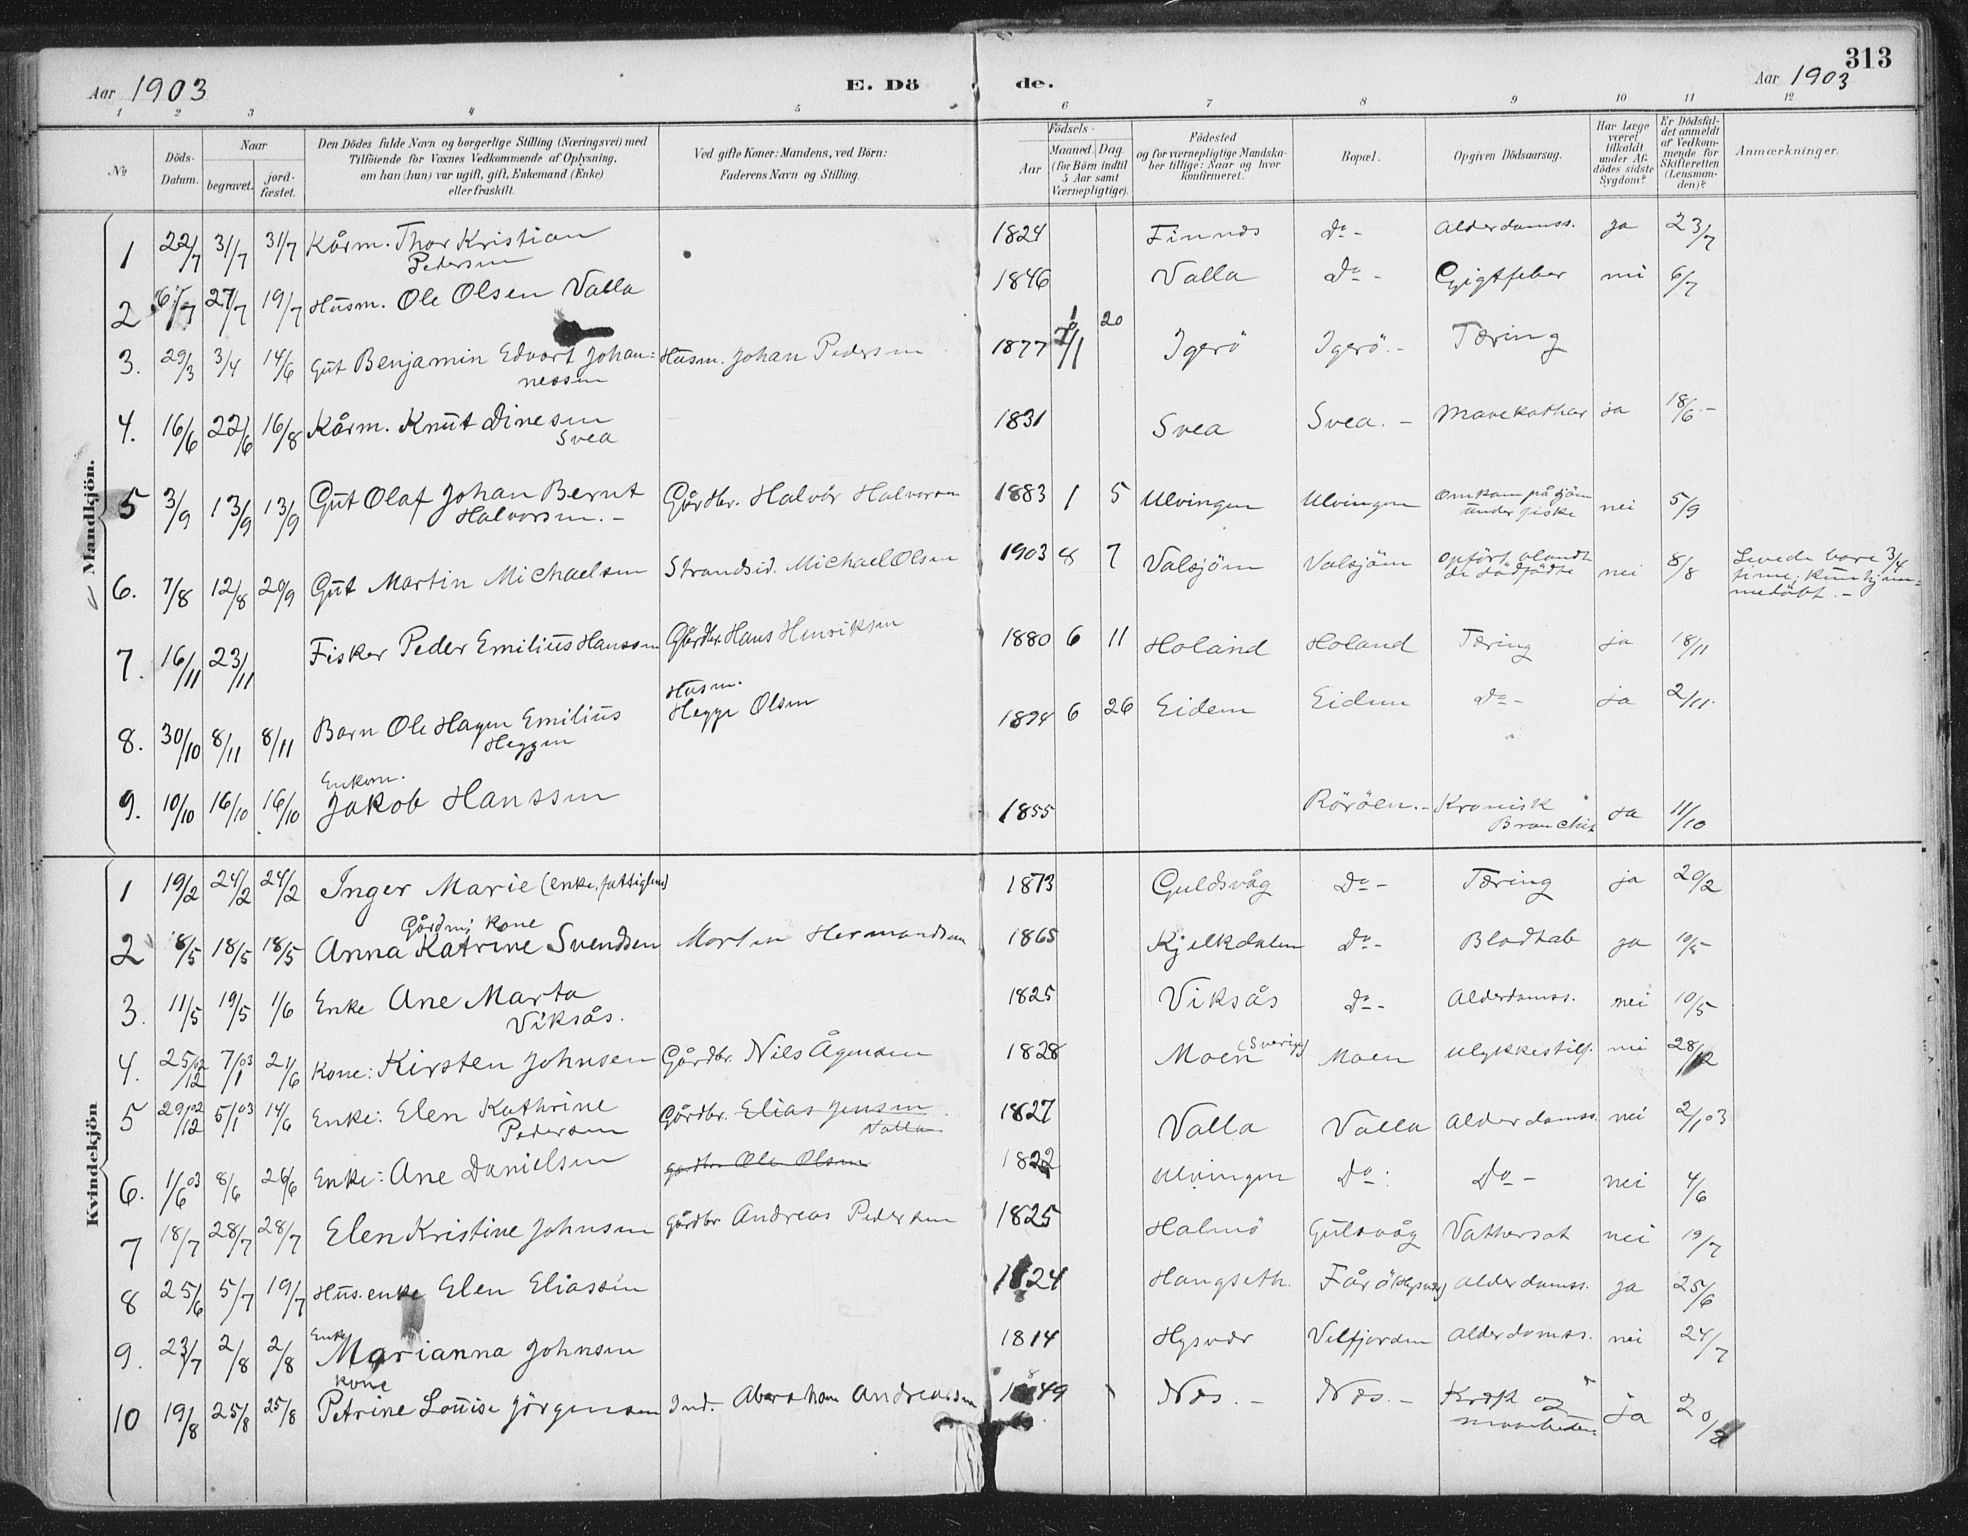 313
Aar 1903 E. Dö de. Aar 1903
1 2 3 4 5 6 7 8 9 10 11 12
No
Döds-Datum.
Naar
begravet.
jord-fæstet.
Den Dödes fulde Navn og borgerlige Stilling (Næringsvei) med
Tilföiende for Voxnes Vedkommende af Oplysning,
om han (hun) var ugift, gift, Enkemand (Enke)
eller fraskilt.
Ved gifte Koner: Mandens, ved Börn:
Faderens Navn og Stilling.
Födsels-
Aar
Maaned. Dag
(for Börn indtil
5 Aar samt
Værnepligtige).
Födested
og for værnepligtige Mandska-
ber tillige: Naar og hvor
konfirmeret.
Bopæl.
Opgiven Dödsaarsag.
Har Læge
været
tilkaldt
under Af-
dödes sidste
Sygdom?
Er Dödsfal-
det anmeldt
af Vedkom-
mende for
Skifteretten
(Lensman-
den)?
Anmærkninger.
Mandkjön.
1 22/7 31/7 31/7 Kårm. Thor Kristian Pedersen 1824 Finnes Do- Alderdomss. ja 23/7
2 6/7 27/7 19/7 Husm. Ole Olsen Valla 1846 Valla Do- Gigtfeber nei 6/7
3. 29/3 3/4 14/6 Gut Benjamin Edvart Johan=nessen Husm. Johan Pedersen 1877 20 Igerö Igerö.- Tæring
4. 16/6 22/6 16/8 Kårm. Knut Dinesen Svea 1831 Svea Svea.- Mavekathar ja 18/6.-
5 3/9 13/9 13/9 Gut Olaf Johan Bernt Halvorsen.- Gårdbr. Halvor Halvorsen 1883 1 5 Ulvingen Ulvingen Omkom på sjöen under fiske nei 5/9
6. 7/8 12/8 20/9 Gut Martin Michaelsen Strandsid. Michael Olsen 1903 8 7 Valsjöen Valsjöen Opfört blandt de dödfödte nei 8/8 Levede bare 3/4 time; Kun hjem=medöbt.-
7. 16/11 23/11 Fisker Peder Emilius Hanssen Gårdbr. Hans Henriksen 1880 6 11 Holand Holand Tæring ja 18/11
8. 30/10 8/11 8/11 Barn Ole Hagen Emilius Heggen Husm. Hegge Olsen 1894 6 26 Eidem Eidem Do- ja 2/11.
9. 10/10 16/10 16/10 Enkem. Jakob Hanssen 1855 Röröen.- Kronisk Bronchit ja 11/10
Kvindekjön
1 19/2 24/2 24/2 Inger Marie (enke, fattiglem) 1873 Guldsvåg Do- Tæring ja 20/2
2 8/5 18/5 18/5 Gårdm; kone Anna Katrine Svendsen Morten Hermandsen 1865 Kjelkdalen Do- Blodtab ja 10/5
3. 11/5 19/5 1/6 Enke Ane Marta Viksås. 1825 Viksås Do- Alderdomss. nei 10/5
4. 25/12 02 7/1 03 21/6 Kone: Kirsten Johnsen Gårdbr. Nils Ågensen 1828 Moen (Sverige) Moen Ulykkestilf. nei 28/12
5 29/12 02 5/1 03 14/6 Enke: Elen Kathrine Pedersen Gårdbr. Elias Jensen Valla 1827 Valla Valla Alderdomss. nei 2/1 03
6. 1/6 03 8/6 26/6 Enke: Ane Danielsen gårdbr. Ole Olsen 1822 Ulvingen Do: Do- nei 4/6
7 18/7 28/7 28/7 Elen Kristine Johnsen Gårdbr Andreas Pedersen 1825 Halmö Gulsvåg Vathersot nei 19/7
8 25/6 5/7 19/7 Hus.enke Elen Eliassen 1824 Haugseth. Fårö (Hysvær) Alderdomss. ja 25/6
9. 23/7 2/8 2/8 Enke Marianna Johnsen 1814 Hysvær Velfjorden Alderdomss. nei 24/7
10 19/8 25/8 25/8 kone Petrine Louise Jörgensen Ind.- Aberaham Andreassen 1849 Næs.- Næs.- Kræft og ja 20/8